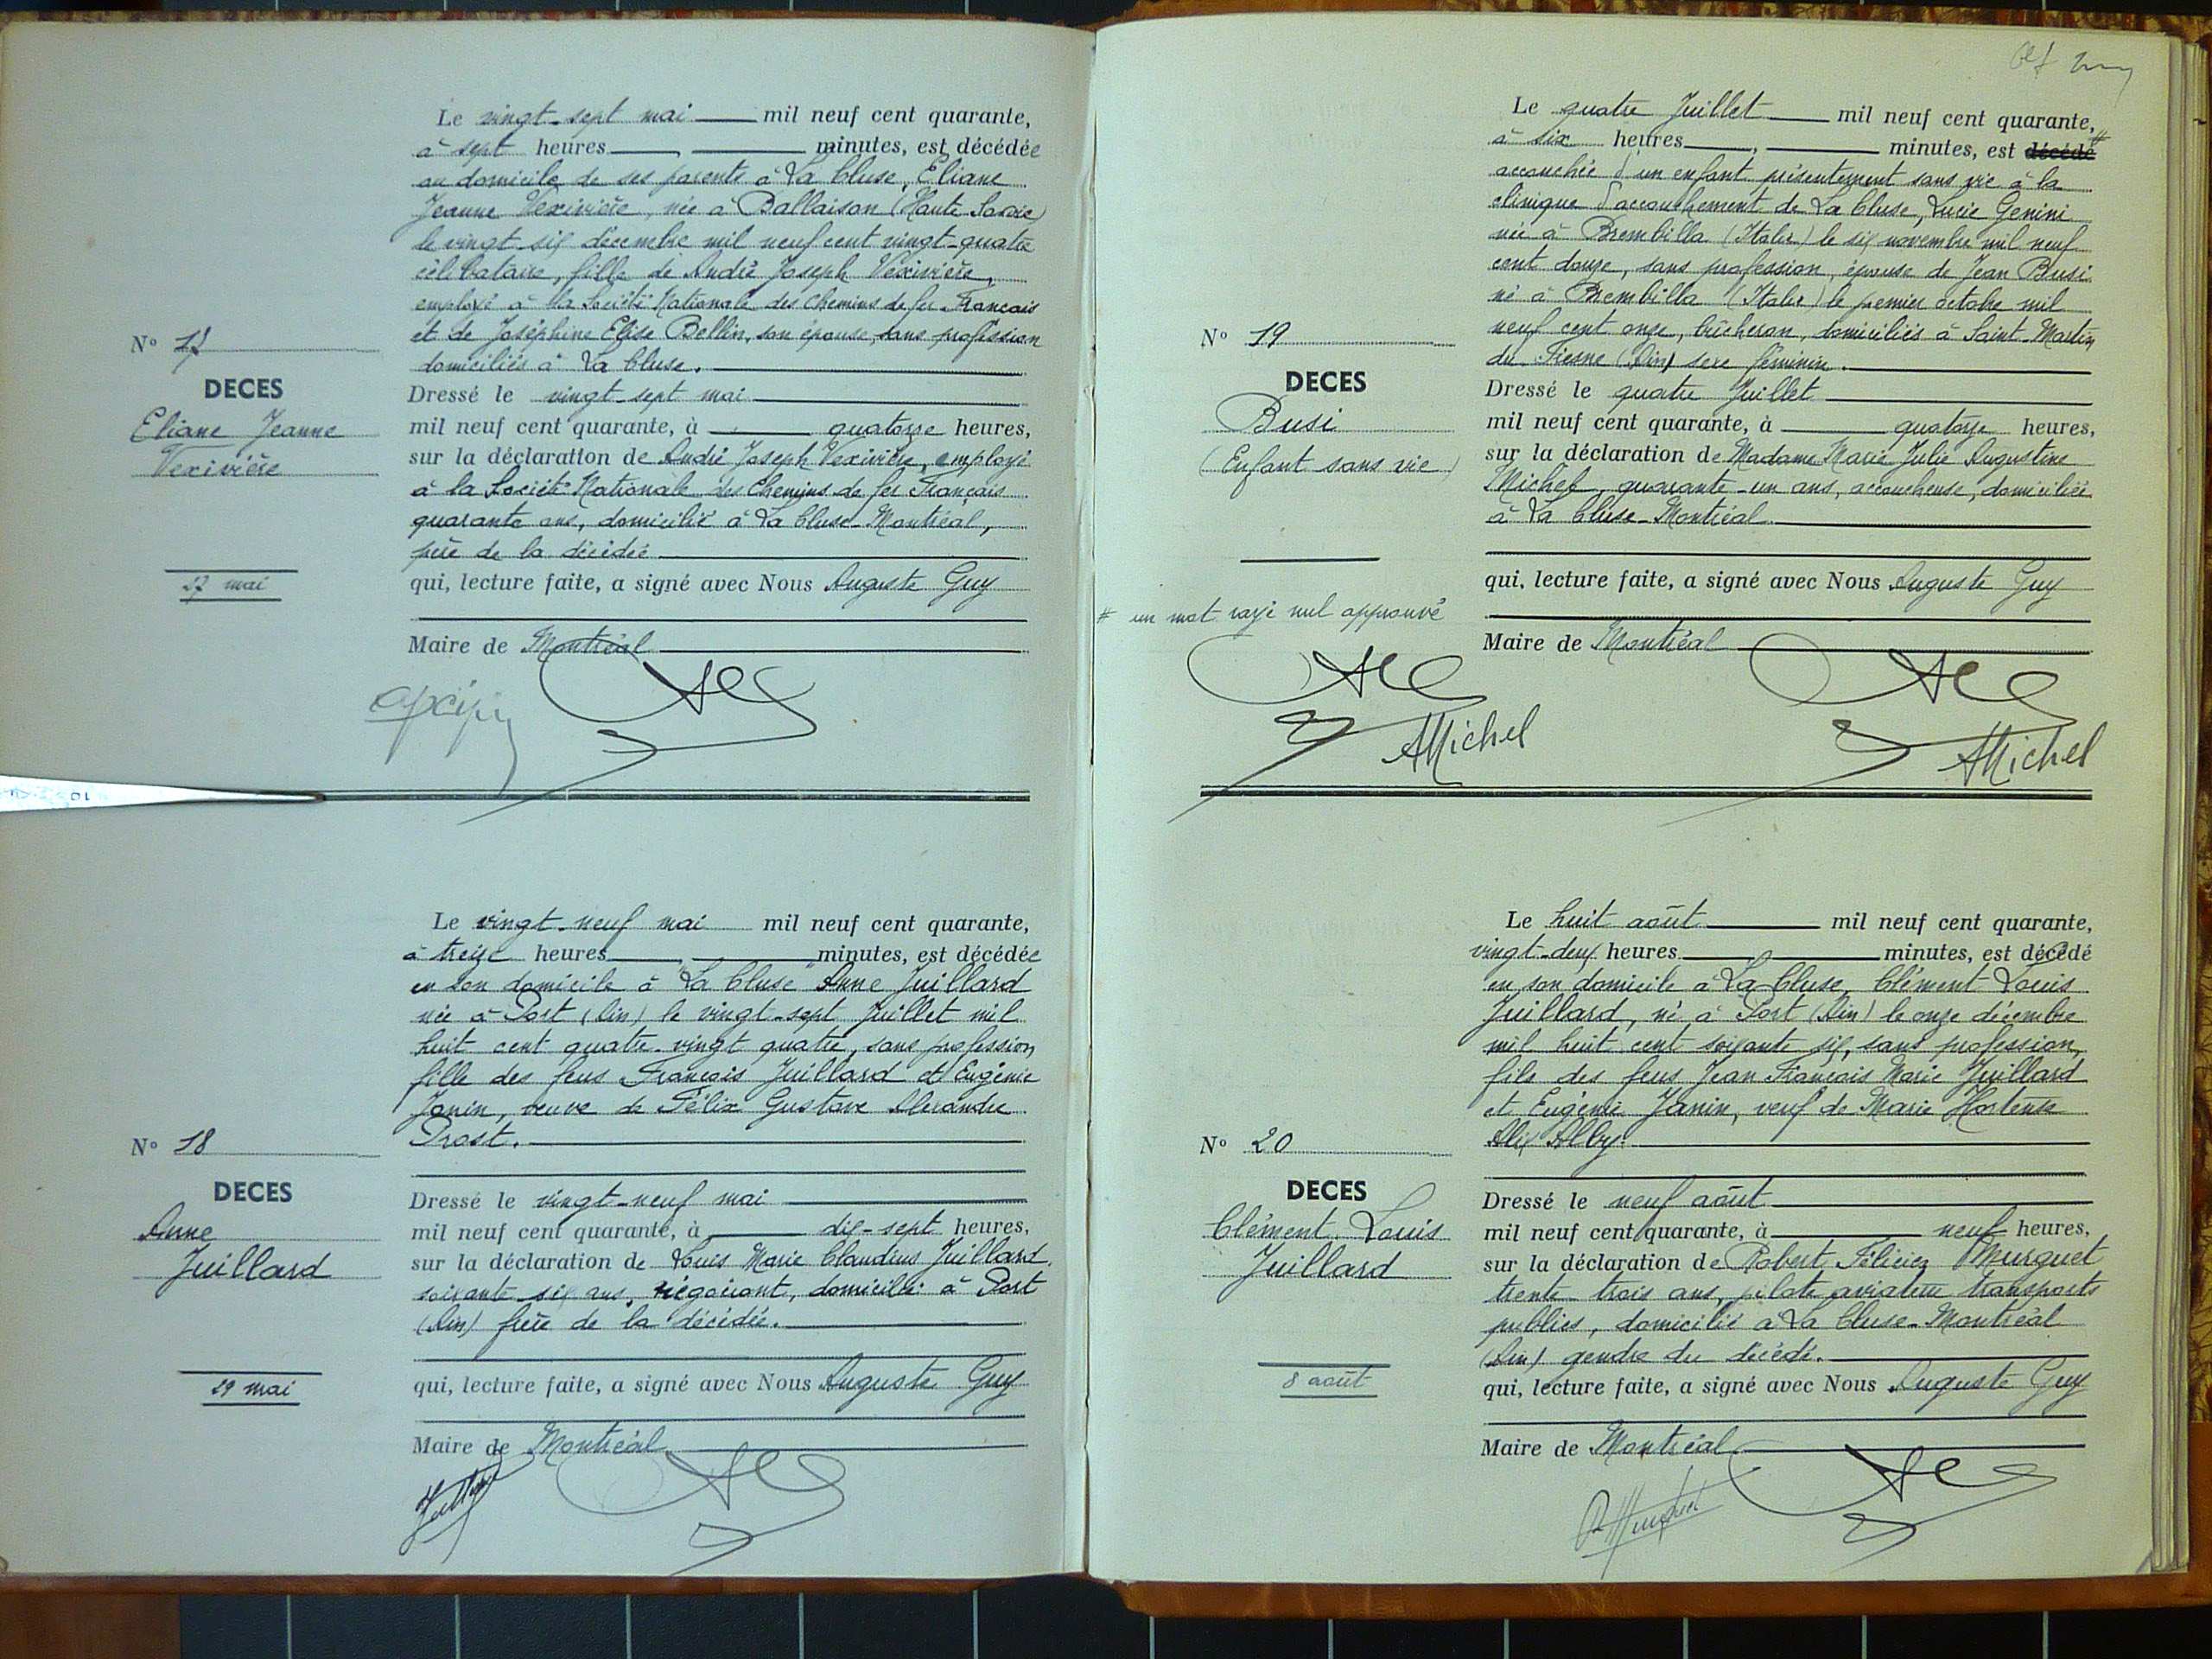 Le vingt-sept mai mil neuf cent quarante,
à sept heures, minutes, est décédée
au domicile de ses parents à La Cluse, Eliane
Jeanne Vexivière, née à Ballaison (Haute Savoie)
le vingt-six décembre mil neuf cent vingt-quatre
célibataire, fille de André Joseph Vexivière,
employé à la Société Nationale des Chemins de fer Français
et de Joséphine Elise Bellin, son épouse, sans profession
domiciliés à La Cluse.
N° 17
DECES
Eliane Jeanne
Vexivière
27 mai
Dressé le vingt-sept mai
mil neuf cent quarante, à quatorze heures,
sur la déclaration de André Joseph Vexivière, employé
à la Société Nationale des Chemins de fer Français
quarante ans, domicilié à La Cluse-Montréal,
père de la décédée
qui, lecture faite, a signé avec Nous Auguste Guy
Maire de Montréal
Le vingt-neuf mai mil neuf cent quarante,
à treize heures, minutes, est décédée
en son domicile à "La Cluse" Anne Juillard
née à Port (Ain) le vingt-sept Juillet mil
huit cent quatre-vingt quatre, sans profession
fille des feus François Juillard et Eugénie
Janin, veuve de Félix Gustave Alexandre
Prost.
N° 18
DECES
Anne
Juillard
29 mai
Dressé le vingt-neuf mai
mil neuf cent quarante, à dix-sept heures,
sur la déclaration de Louis Marie Claudius Juillard
soixante-six ans, négociant, domicilié à Port
(Ain) frère de la décédée.
qui, lecture faite, a signé avec Nous Auguste Guy
Maire de Montréal
Le quatre Juillet mil neuf cent quarante,
à six heures, minutes, est décédé #
accouchée d'un enfant présentement sans vie à la
clinique d'accouchement de La Cluse, Lucie Genini
née à Brembilla (Italie) le six novembre mil neuf
cent douze, sans profession, épouse de Jean Busi
né à Brembilla (Italie) le premier octobre mil
neuf cent onze, bûcheron, domiciliés à Saint-Martin
du Fresne (Ain) sexe féminin.
N° 19
DECES
Busi
(Enfant sans vie)
Dressé le quatre Juillet
mil neuf cent quarante, à quatorze heures,
sur la déclaration de Madame Marie Julie Augustine
Michel, quarante-un ans, accoucheuse, domiciliée
à La Cluse-Montréal
qui, lecture faite, a signé avec Nous Auguste Guy
# un mot rayé nul approuvé
Maire de Montréal
AMichel
AMichel
Le huit août mil neuf cent quarante,
vingt-deux heures minutes, est décédé
en son domicile à La Cluse, Clément Louis
Juillard, né à Port (Ain) le onze décembre
mil huit cent soixante six, sans profession,
fils des feus Jean François Marie Juillard
et Eugénie Janin, veuf de Marie Hortense
Alix Alby.
N° 20
DECES
Clément Louis
Juillard
8 août
Dressé le neuf août
mil neuf cent quarante, à neuf heures,
sur la déclaration de Robert Félicien Murguet
trente-trois ans, pilote aviateur transports
publics, domicilié à La Cluse-Montréal
(Ain) gendre du décédé.
qui, lecture faite, a signé avec Nous Auguste Guy
Maire de Montréal